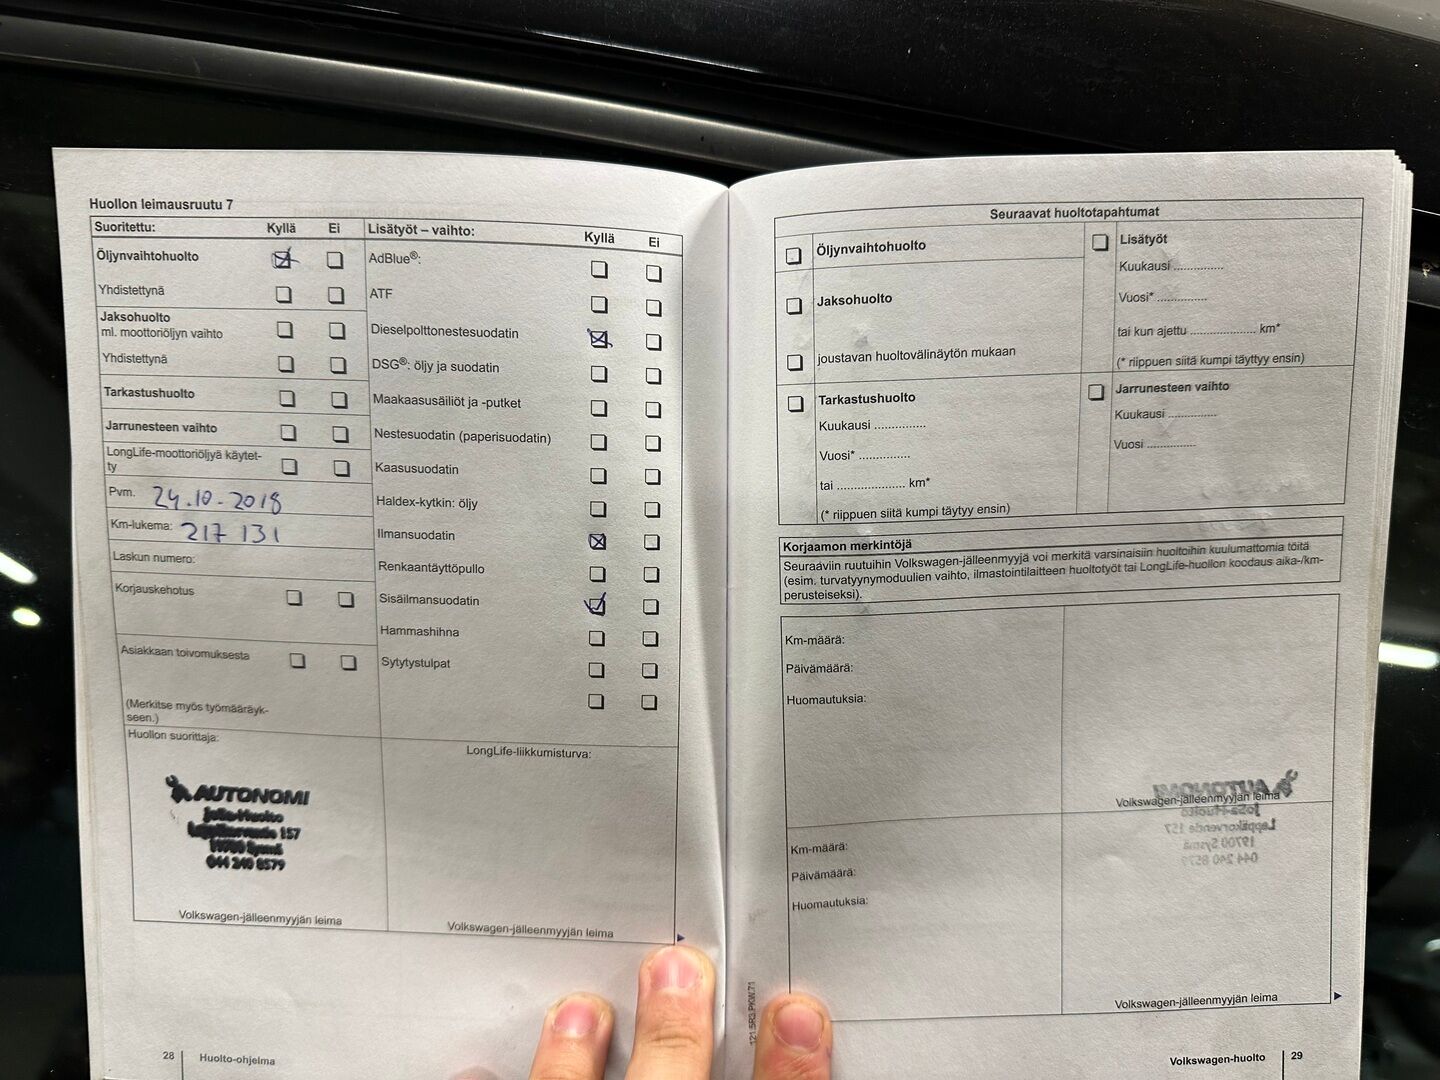 Huollon leimausruutu 7
Suoritettu: Kyllä Ei
Öljynvaihtohuolto
Yhdistettynä
Jaksohuolto
ml. moottoriöljyn vaihto
Yhdistettynä
Tarkastushuolto
Jarrunesteen vaihto
LongLife-moottoriöljyä käytet-
ty
Pvm. 24.10-2018
Km-lukema: 217 131
Laskun numero:
Korjauskehotus
Asiakkaan toivomuksesta
(Merkitse myös työmääräyk-
seen.)
Lisätyöt – vaihto: Kyllä Ei
AdBlue®:
ATF
Dieselpolttonestesuodatin
DSG®: öljy ja suodatin
Maakaasusäiliöt ja -putket
Nestesuodatin (paperisuodatin)
Kaasusuodatin
Haldex-kytkin: öljy
Ilmansuodatin
Renkaantäyttöpullo
Sisäilmansuodatin
Hammashihna
Sytytystulpat
Huollon suorittaja:
AUTONOMI
JoSa-Huolto
Leppäkorvende 157
19700 Sysmä
044 240 8579
Volkswagen-jälleenmyyjän leima
LongLife-liikkumisturva:
Volkswagen-jälleenmyyjän leima
28 Huolto-ohjelma
Seuraavat huoltotapahtumat
Öljynvaihtohuolto
Jaksohuolto
joustavan huoltovälinäytön mukaan
Tarkastushuolto
Kuukausi ...............
Vuosi* ...............
tai .................... km*
(* riippuen siitä kumpi täytyy ensin)
Lisätyöt
Kuukausi ...............
Vuosi* ...............
tai kun ajettu .................... km*
(* riippuen siitä kumpi täyttyy ensin)
Jarrunesteen vaihto
Kuukausi ...............
Vuosi ...............
Korjaamon merkintöjä
Seuraaviin ruutuihin Volkswagen-jälleenmyyjä voi merkitä varsinaisiin huoltoihin kuulumattomia töitä
(esim. turvatyynymoduulien vaihto, ilmastointilaitteen huoltotyöt tai LongLife-huollon koodaus aika-/km-
perusteiseksi).
Km-määrä:
Päivämäärä:
Huomautuksia:
AUTONOMI
Volkswagen-jälleenmyyjän leima
JoSa-Huolto
Leppäkorvende 157
19700 Sysmä
044 240 8579
Km-määrä:
Päivämäärä:
Huomautuksia:
Volkswagen-jälleenmyyjän leima
121.5R3.PKW.71
Volkswagen-huolto 29